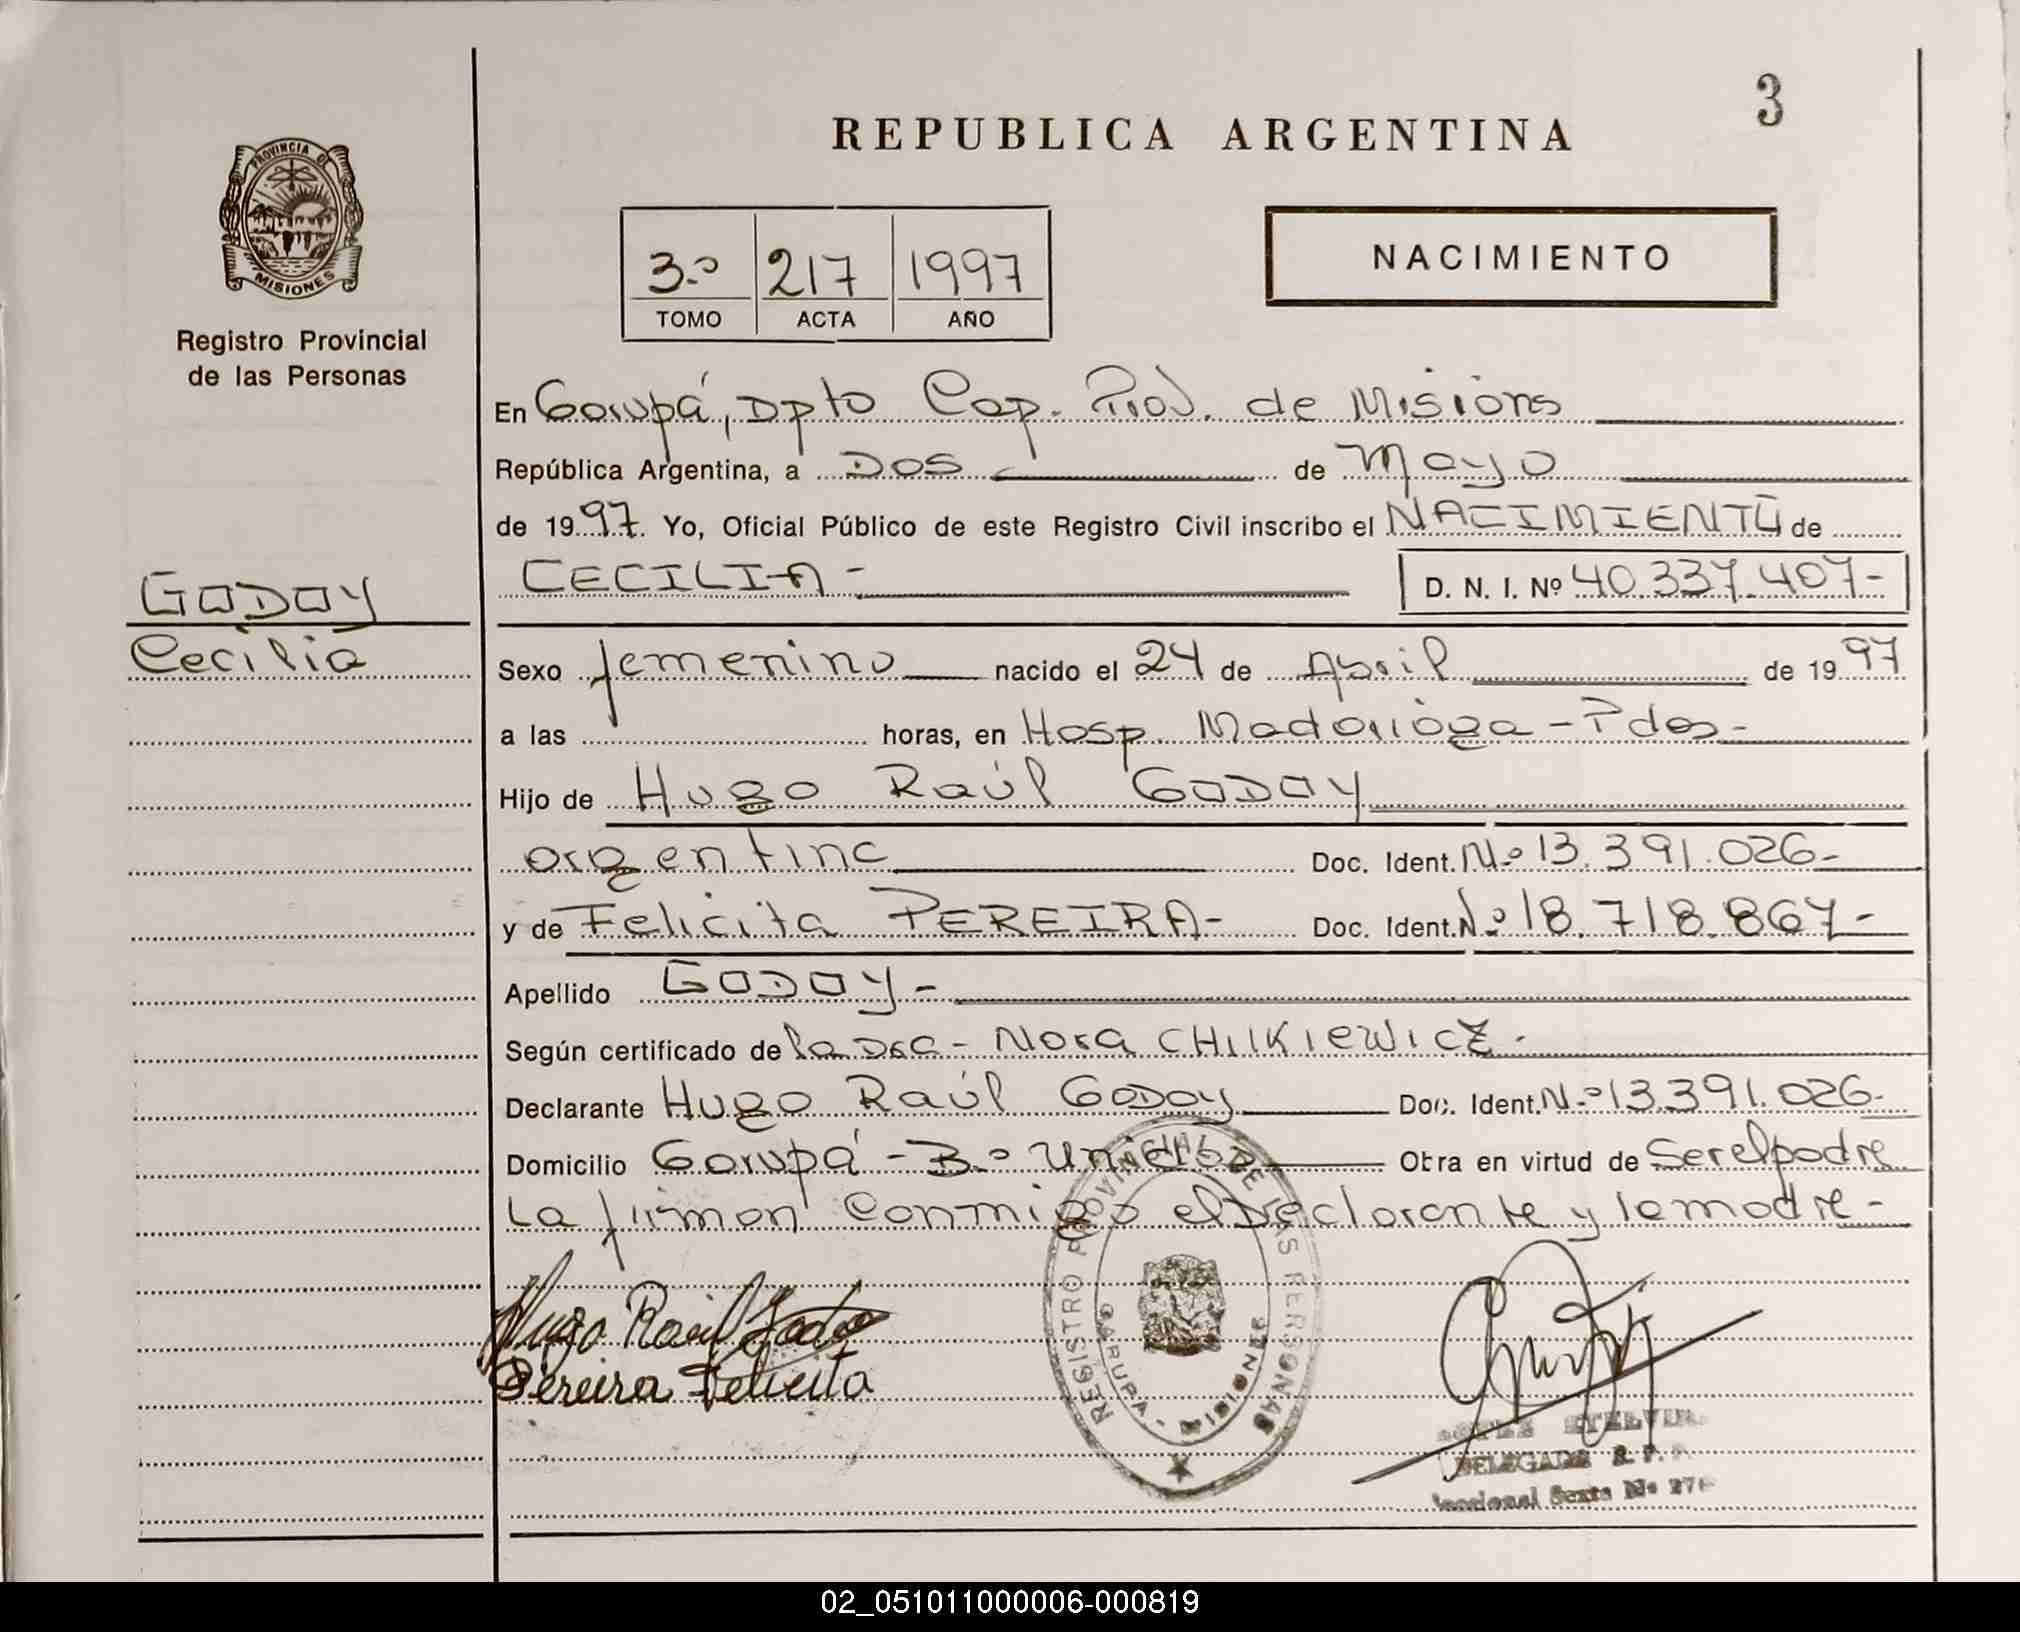 3
REPUBLICA ARGENTINA
PROVINCIA DE
MISIONES
Registro Provincial
de las Personas
3.º 217 1997
TOMO ACTA AÑO
NACIMIENTO
En Garupá, Dpto Cap. Prov. de Misions
República Argentina, a Dos de Mayo
de 1997. Yo, Oficial Público de este Registro Civil inscribo el NACIMIENTO de
CECILIA- D. N. I. Nº 40.337.407-
GODOY
Cecilia
Sexo femenino nacido el 24 de Abril de 1997
a las horas, en Hosp. Madariaga - Pdas-
Hijo de Hugo Raúl GODOY
argentino Doc. Ident. N.º 13.391.026-
y de Felicita PEREIRA- Doc. Ident. N.º 18.718.867-
Apellido GODOY-
Según certificado de la Dra- Nora CHILKIEWICZ-
Declarante Hugo Raúl GODOY Doc. Ident. N.º 13.391.026-
Domicilio Garupá - B.º Unidos Obra en virtud de Ser el padre
La firman conmigo el Declarante y la madre-
Hugo Raúl Godoy
Pereira Felicita
REGISTRO PROVINCIAL DE LAS PERSONAS
GARUPA - MISIONES
ETELVINA
DELEGADA R. P.
Seccional Sexta Nº
02_051011000006-000819